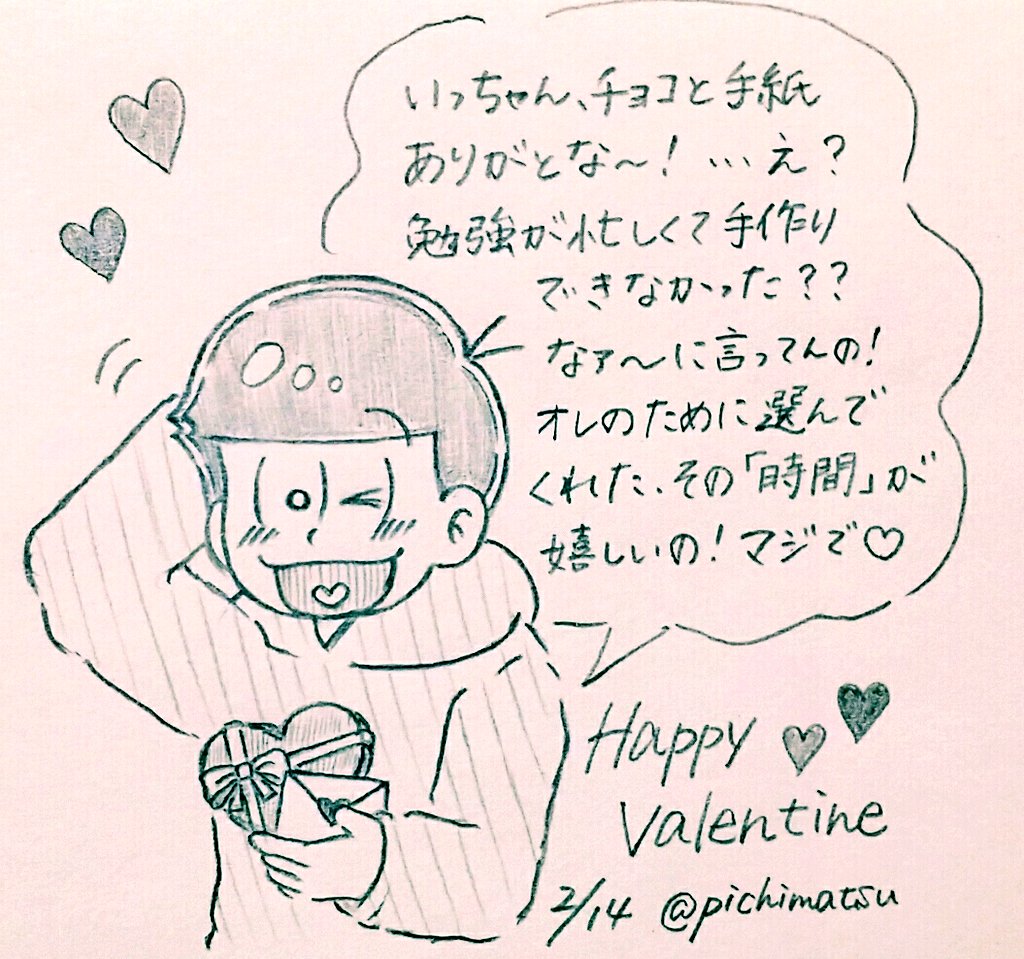 いっちゃん、チョコと手紙
ありがとな〜！…え？
勉強が忙しくて手作り
できなかった？？
なァ〜に言ってんの！
オレのために選んで
くれた、その「時間」が
嬉しいの！マジで♡
Happy
Valentine
2/14 @pichimatsu